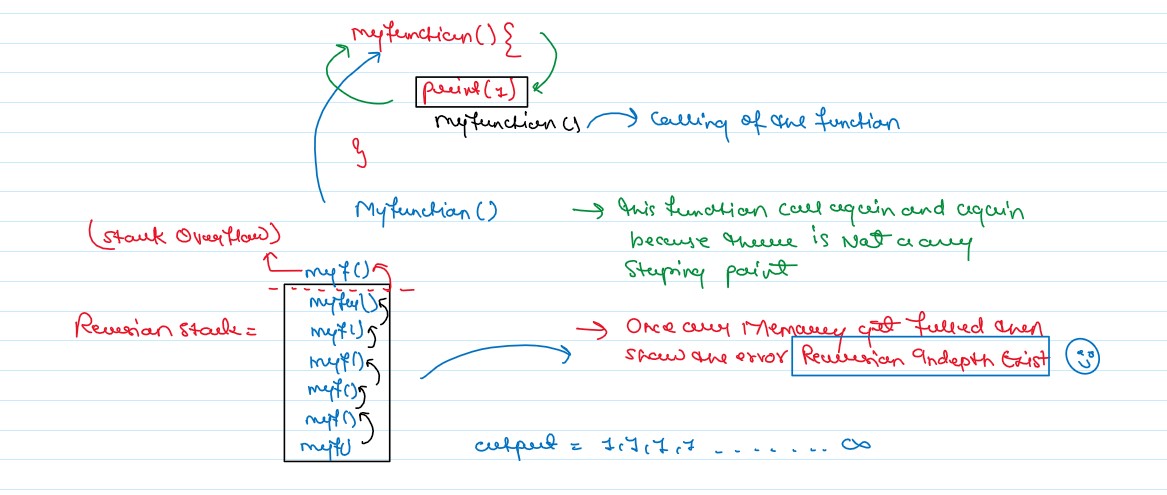 myfunction() {
print(1)
myfunction() → calling of the function
}
Myfunction() → this function call again and again
because there is Not a any
Stoping point
(stack Overflow)
myf()
myfuy()
myf()
myf()
myf()
myf()
myf()
Recursion stack =
→ Once any Memory get fulled then
show the error Recursion Indepth Exist
output = 1,1,1,1 ........ ∞